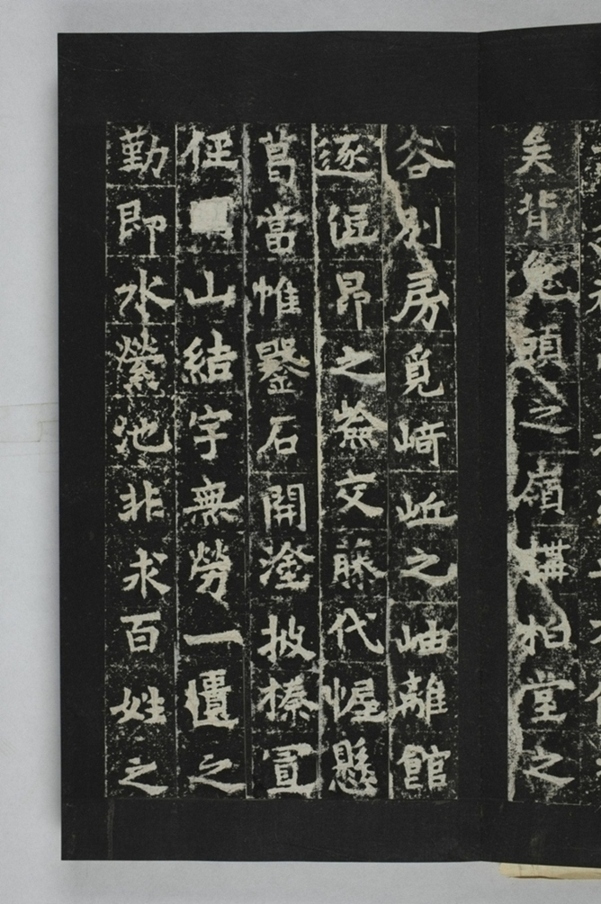 矣背頭之嶺構柏堂之
谷別房覓崎岴之岫離館
逐低昂之交藤代幄懸
葛當帷鑿石開塗披榛置
俓山結宇無勞一之
勤即水縈池非求百姓之